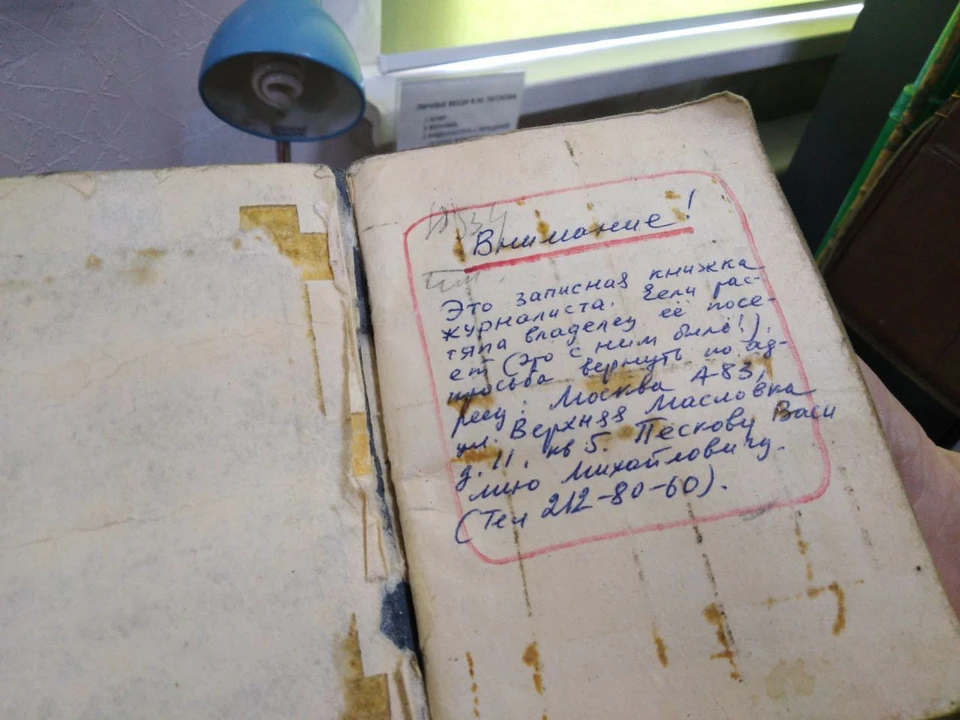 ЛИЧНЫЕ ВЕЩИ В.М. ПЕСКОВА
Внимание!
Это записная книжка
журналиста. Если рас-
тяпа владелец её посе-
ет (это с ним было!),
просьба вернуть по ад-
ресу: Москва А-83,
ул. Верхняя Масловка
д. 11, кв 5. Пескову Васи
лию Михайловичу.
(Тел 212-80-60).